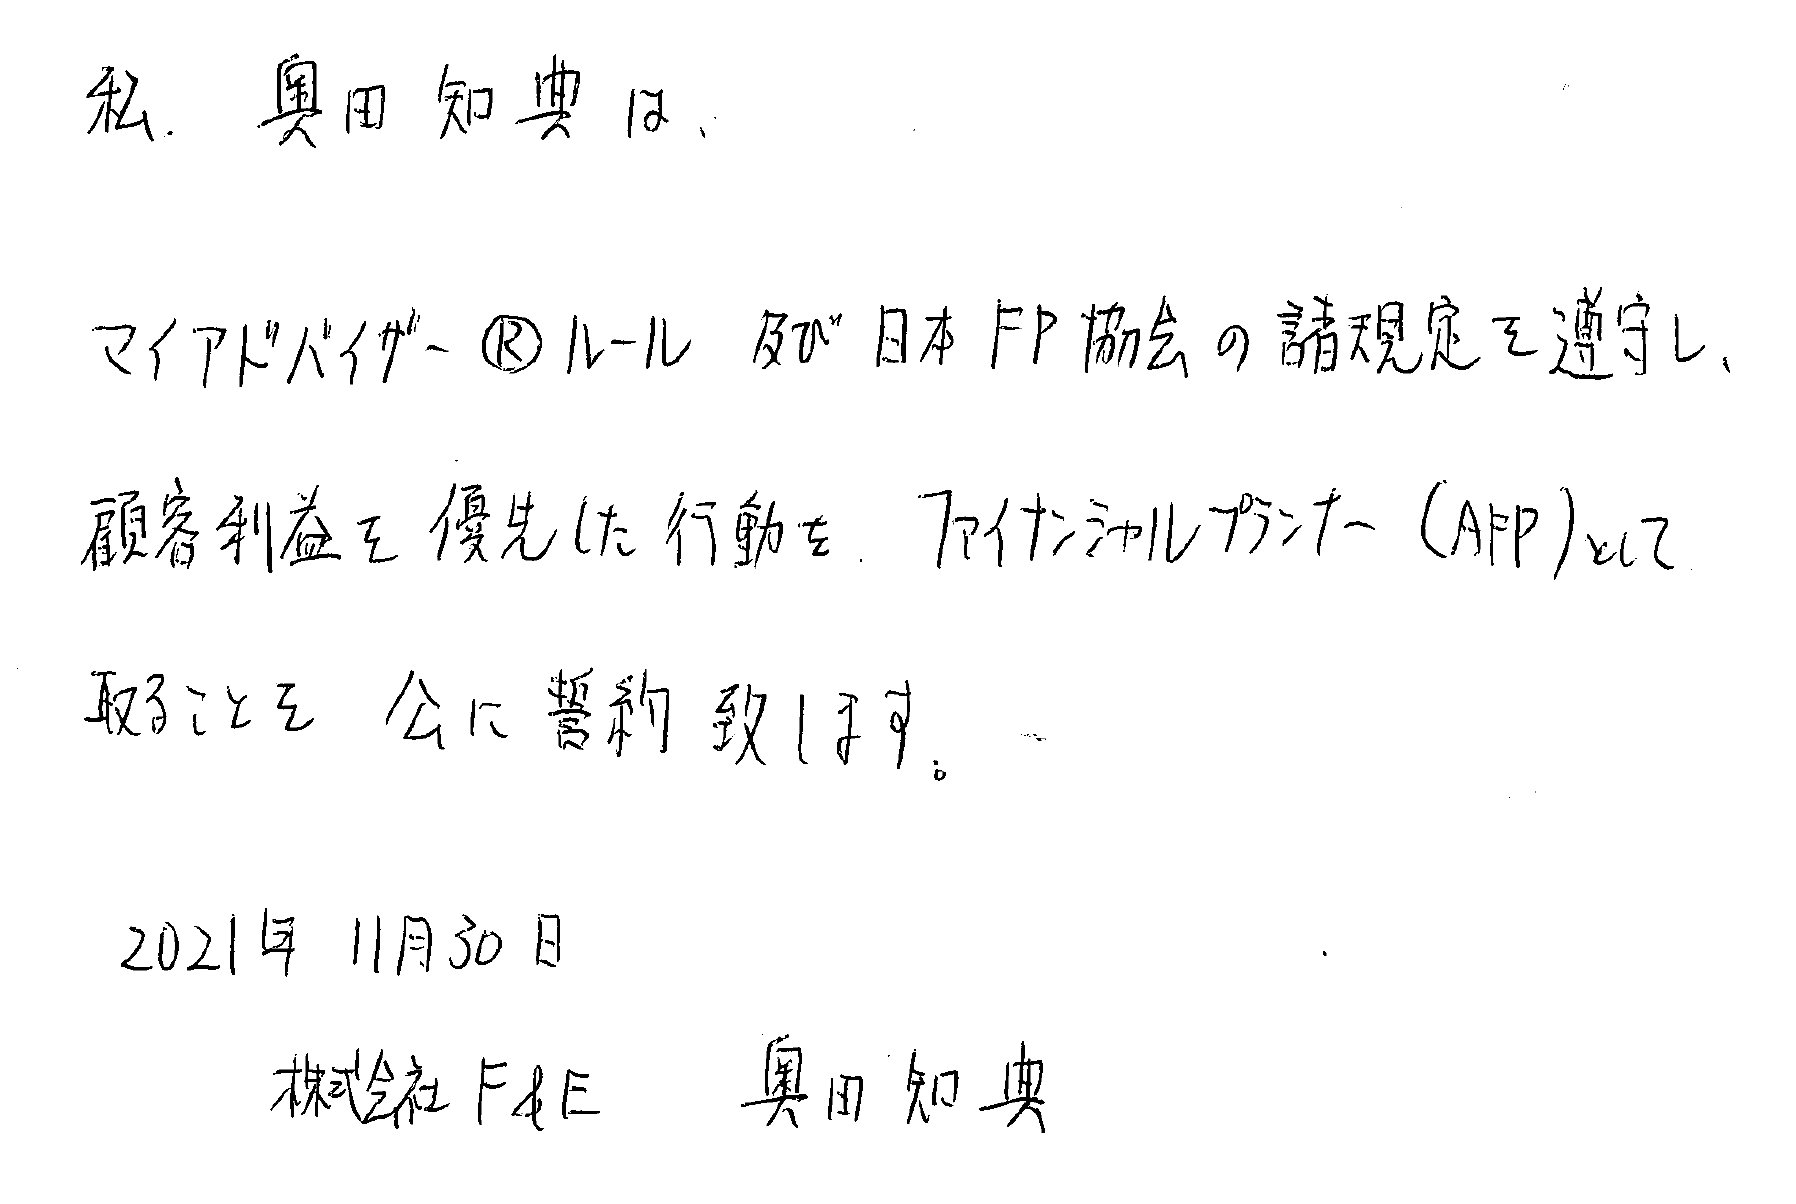 私、奥田知典は、
マイアドバイザー®ルール及び日本FP協会の諸規定を遵守し、
顧客利益を優先した行動を、ファイナンシャルプランナー(AFP)として
取ることを公に誓約致します。
2021年11月30日
株式会社F&E 奥田知典